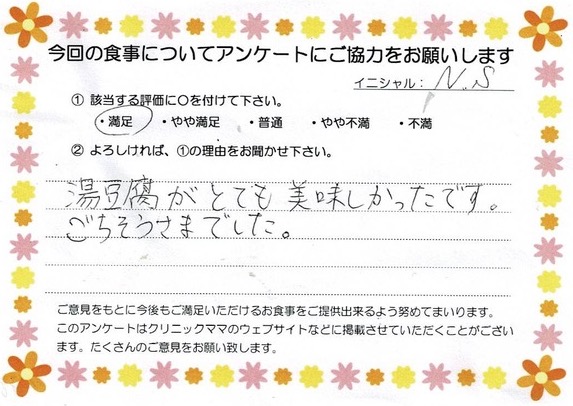 今回の食事についてアンケートにご協力をお願いします
イニシャル： N.S
① 該当する評価に〇を付けて下さい。
・満足 ・やや満足 ・普通 ・やや不満 ・不満
② よろしければ、①の理由をお聞かせ下さい。
湯豆腐がとても美味しかったです。
ごちそうさまでした。
ご意見をもとに今後もご満足いただけるお食事をご提供出来るよう努めてまいります。
このアンケートはクリニックママのウェブサイトなどに掲載させていただくことがござい
ます。たくさんのご意見をお願い致します。